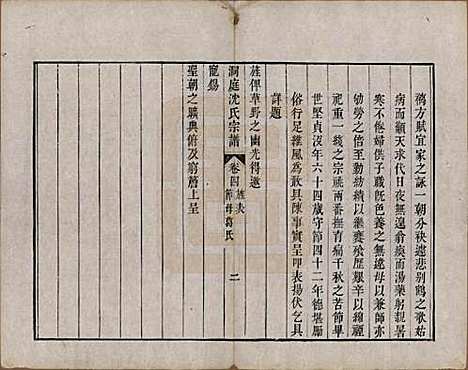 鴻方賦宜家之詠一朝分袂遽悲別鶴之歌姑
病而顧天求代日夜無違翁瘓而湯藥躬親暑
寒不倦婦供子職旣色養之無違母以兼師亦
劬勞之動紡績以繼饔飧歷艱辛以綿嗣
祀重一綫之宗祧兩番撫育痛千秋之苦節畢
世堅貞沒年六十四歲守節四十二年德堪厲
俗行足維風為敢具陳事實呈叩表揚伏乞具
詳題
洞庭沈氏宗譜 卷四 旌表 節母葛氏 二
旌俾草野之幽光得邀
寵錫
聖朝之曠典俯及窮簷上呈